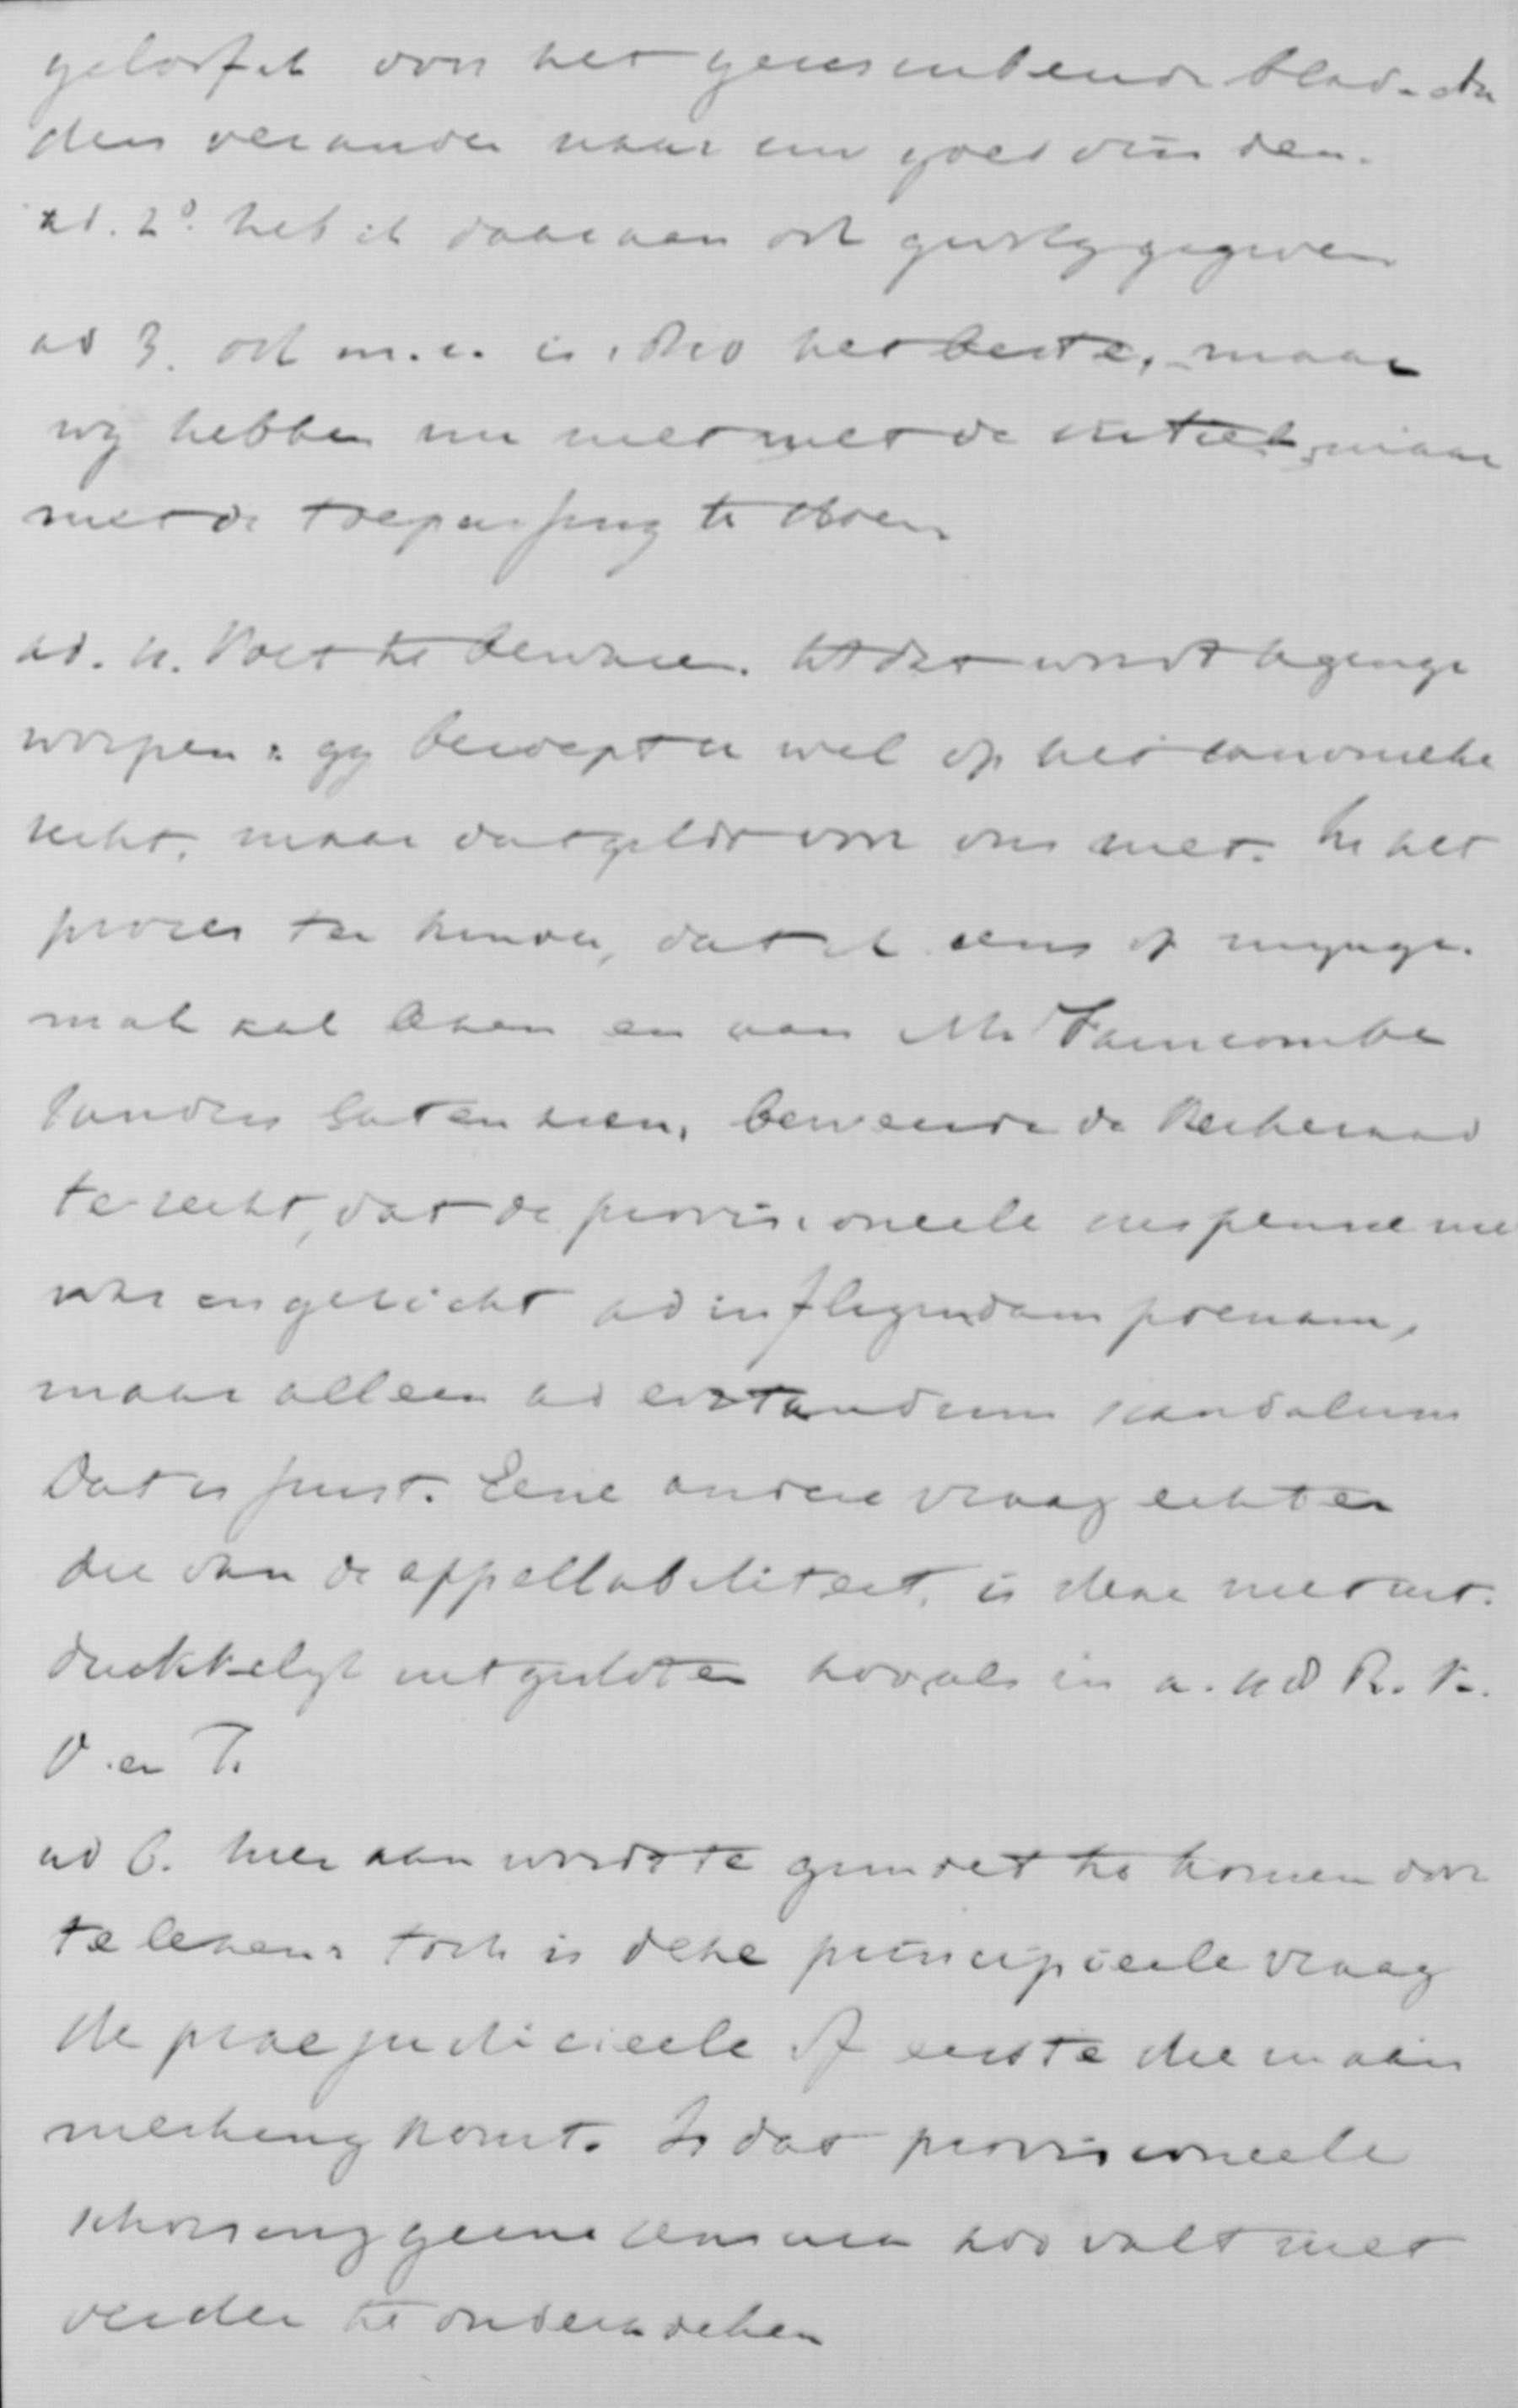 geloof ik van het blad. Zu
den veranderen naar uw goedvinden.
ad. 2°. heb ik daaraan ook gevolg gegeven
ad 3. ook m.i. is zoo het beste, maar
wij hebben nu niet met de maar
met de toepassing te doen
ad. 4. Voet te bewaren. dat wordt tegenge
worpen: gij beroept u wel op het canonieke
recht, maar dat geldt voor ons niet. In het
proces ter dat ik eens op mijn ge-
mak zal lezen en aan Mr Fauncombe
Sanders laten zien, beweerde de Kerkeraad
te recht, dat de provisioneele suspensie nie
was ingericht ad infligendam poenam,
maar alleen ad evitandum scandalum
Dat is juist. Eene andere vraag echter
die van de appellabiliteit, is deze niet uit-
drukkelijk uitgesloten zooals in a. R. V.
O. en T.
ad 6. hier aan wordt te komen door
te lezen: toch is deze principieele vraag
de praejudicieele of eerste die in aan
merking komt. Is das provisioneele
schorsing geene censuur zoo valt niet
verder te onderzoeken